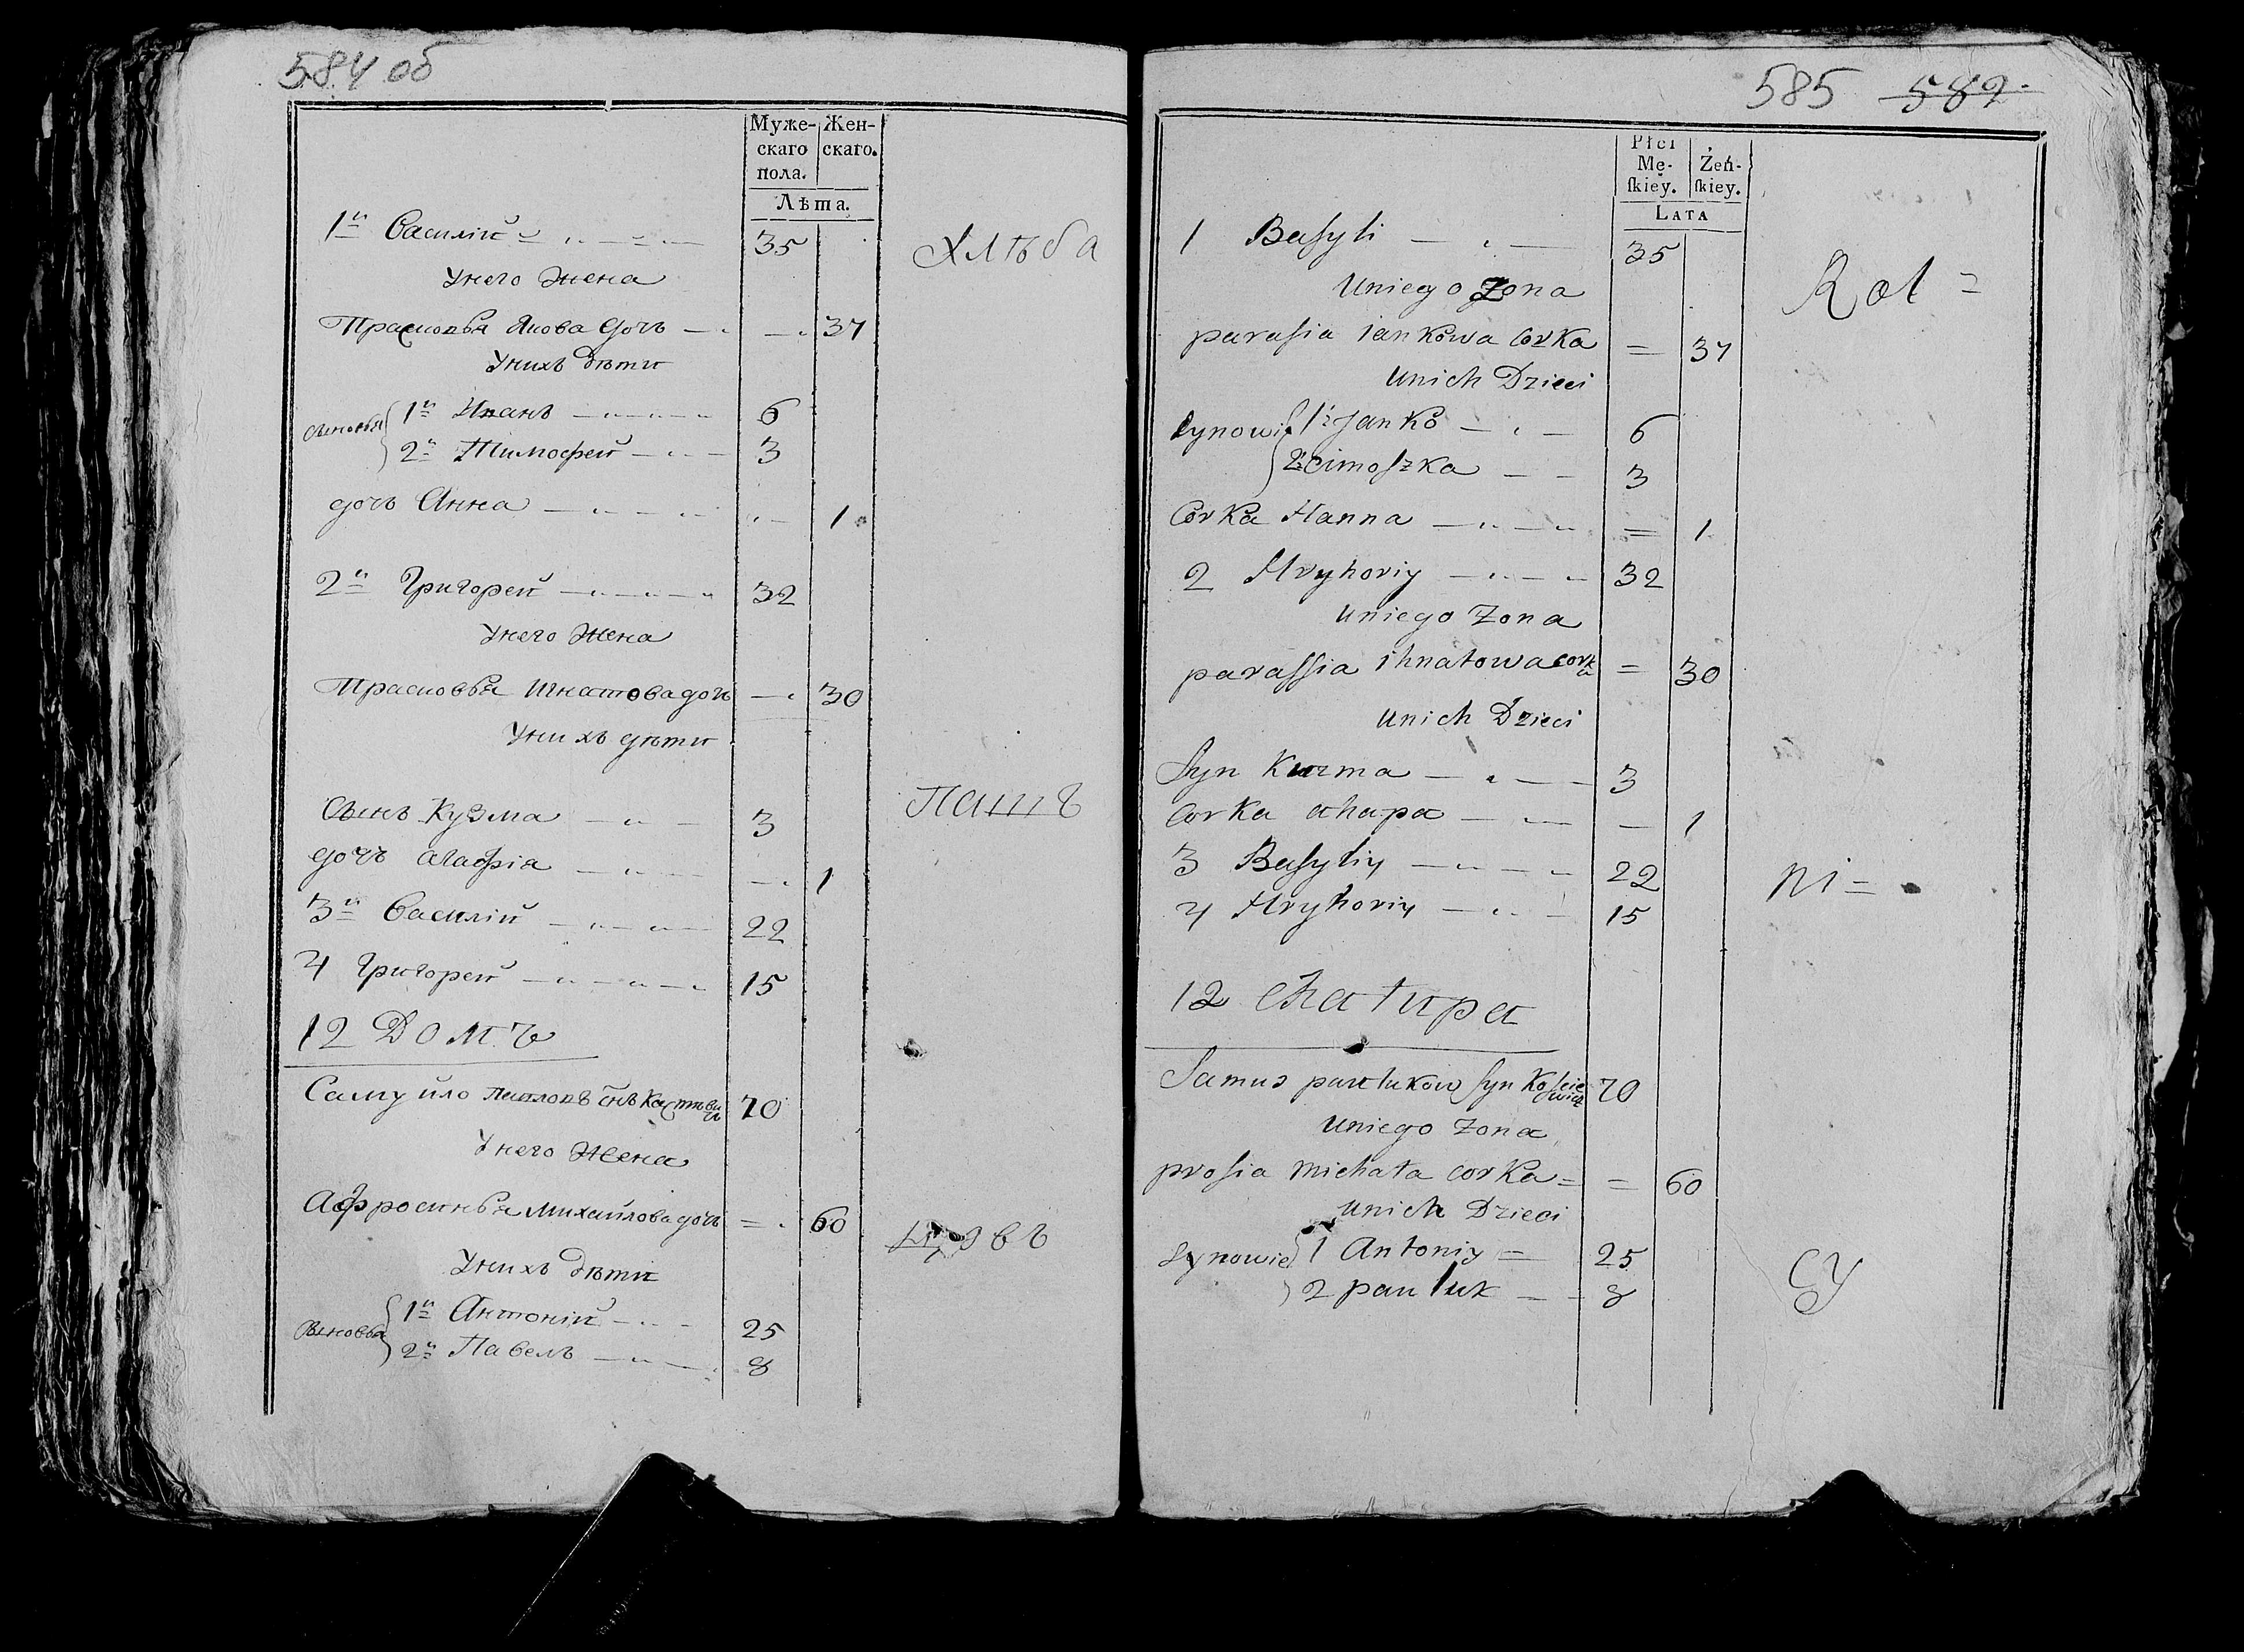 584 об
Муже-
скаго
пола.
Жен-
скаго.
Лѣта.
1й Василій 35
Унего Жена
Прасковья Якова дочь 37
Унихъ дѣти
сыновья 1й Иванъ 6
2й Тимофей 3
дочь Анна 1
2й Григорей 32
Унего Жена
Прасковья Игнатова дочь 30
Унихъ дѣти
Сынъ Кузма 3
дочь Агафія 1
3й Василій 22
4 Григорей 15
12 Домъ
Самуйло Павловъ Снъ 70
Унего Жена
Афросинья Михайлова дочь 60
Унихъ дѣти
Сыновья 1й Антоній 25
2й Павелъ 8
Хлѣба
Пашъ
585 582
Płci
Mę-
ſkiey.
Żeń-
ſkiey.
Lata
1 Baſyli 35
Uniego Zona
paraſia iankowa corka = 37
Unich Dzieci
Synowie 1 Janko 6
2 cimoſzka 3
Corka Hanna = 1
2 Hryhoriy 32
Uniego Zona
paraſſia ihnatowa corka = 30
Unich Dzieci
Syn Kuzma 3
Corka ahapa 1
3 Baſyliy 22
4 Hryhoriy 15
12 Chatupa
Samus pawlukow Syn Koſciewicz 70
Uniego Zona
proſia Michała corka = = 60
Unich Dzieci
Synowie 1 Antoniy = 25
2 pawluk 8
Rol =
ni =
CY